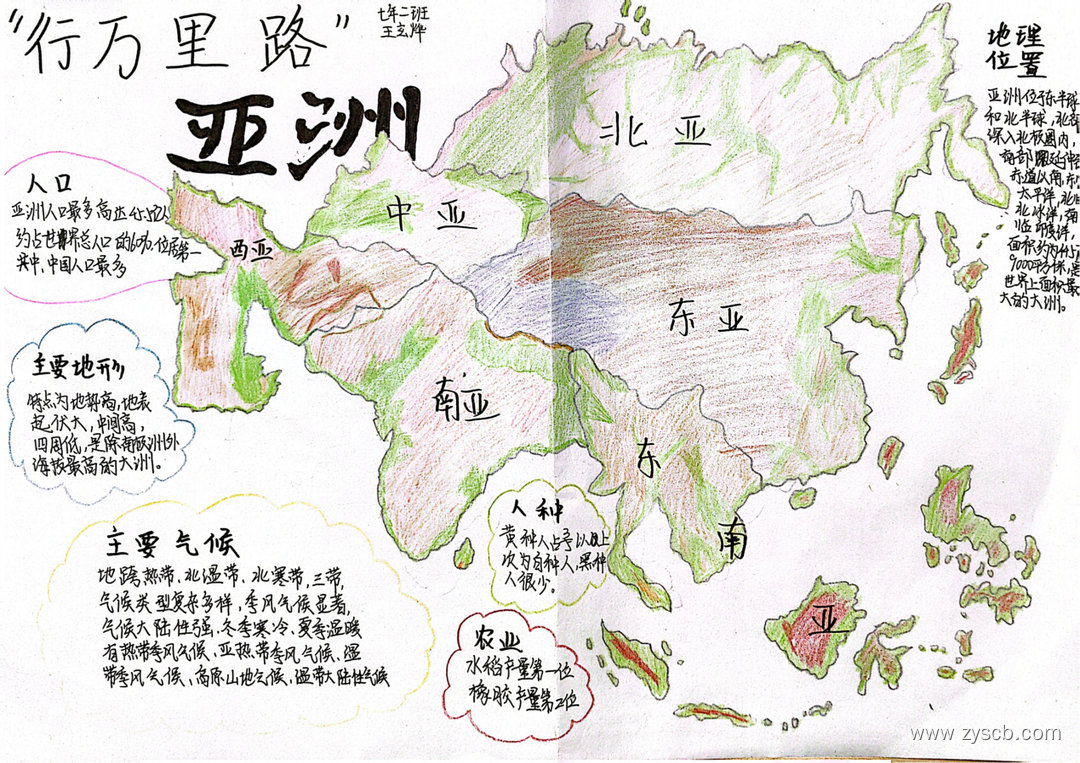 “行万里路”
七年二班
王玄烨
亚洲
地理
位置
亚洲位于东半球
和北半球，北部
深入北极圈内，
南部延伸
赤道以南，东
太平洋，北
北冰洋，南
临印度洋，
面积约为44
9000平方米，是
世界上面积最
大的大洲。
北亚
中亚
西亚
东亚
南亚
东
南
亚
人口
亚洲人口最多高达
约占世界总人口的60%.位居第一
其中，中国人口最多
主要地形
特点为地势高，地表
起伏大，中间高，
四周低，是除南极洲外
海拔最高的大洲。
主要气候
地跨热带、北温带、北寒带，三带，
气候类型复杂多样，季风气候显著，
气候大陆性强，冬季寒冷、夏季温暖
有热带季风气候、亚热带季风气候、温
带季风气候、高原山地气候、温带大陆性气候
人种
黄种人占以上
次为白种人，黑种
人很少。
农业
水稻产量第一位
橡胶产量第一位
www.zyscb.com